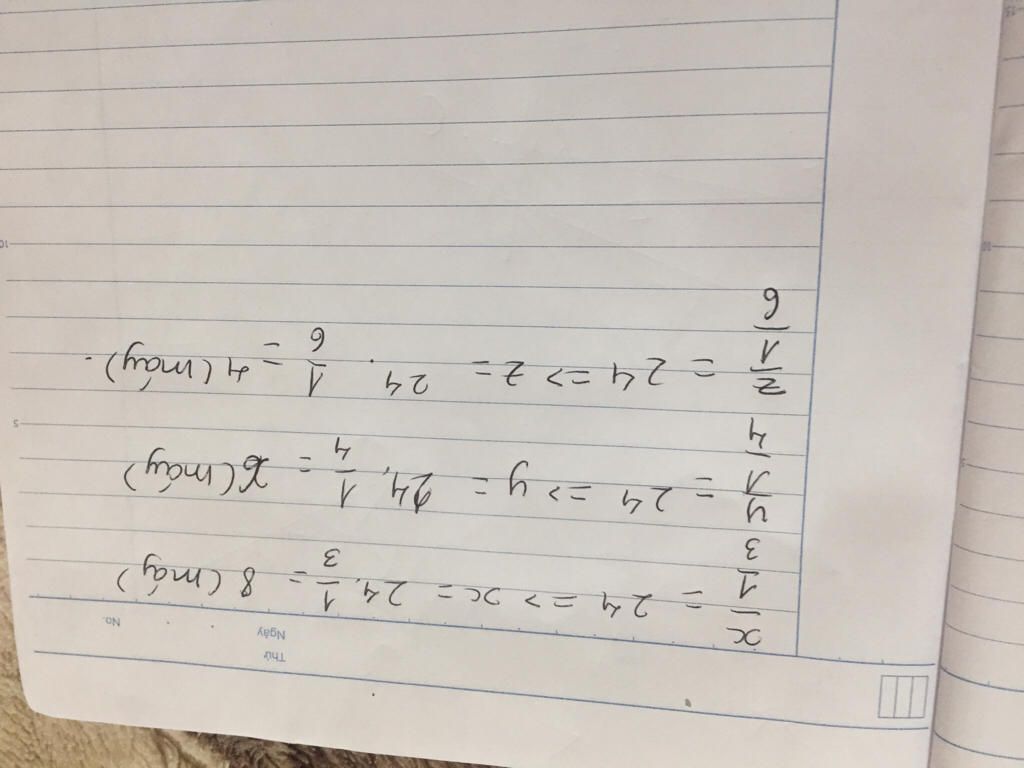 Thứ
Ngày
No.
x/(1/3) = 24 => x = 24 . 1/3 = 8 (máy)
y/(1/4) = 24 => y = 24 . 1/4 = 6 (máy)
z/(1/6) = 24 => z = 24 . 1/6 = 4 (máy).
5
10